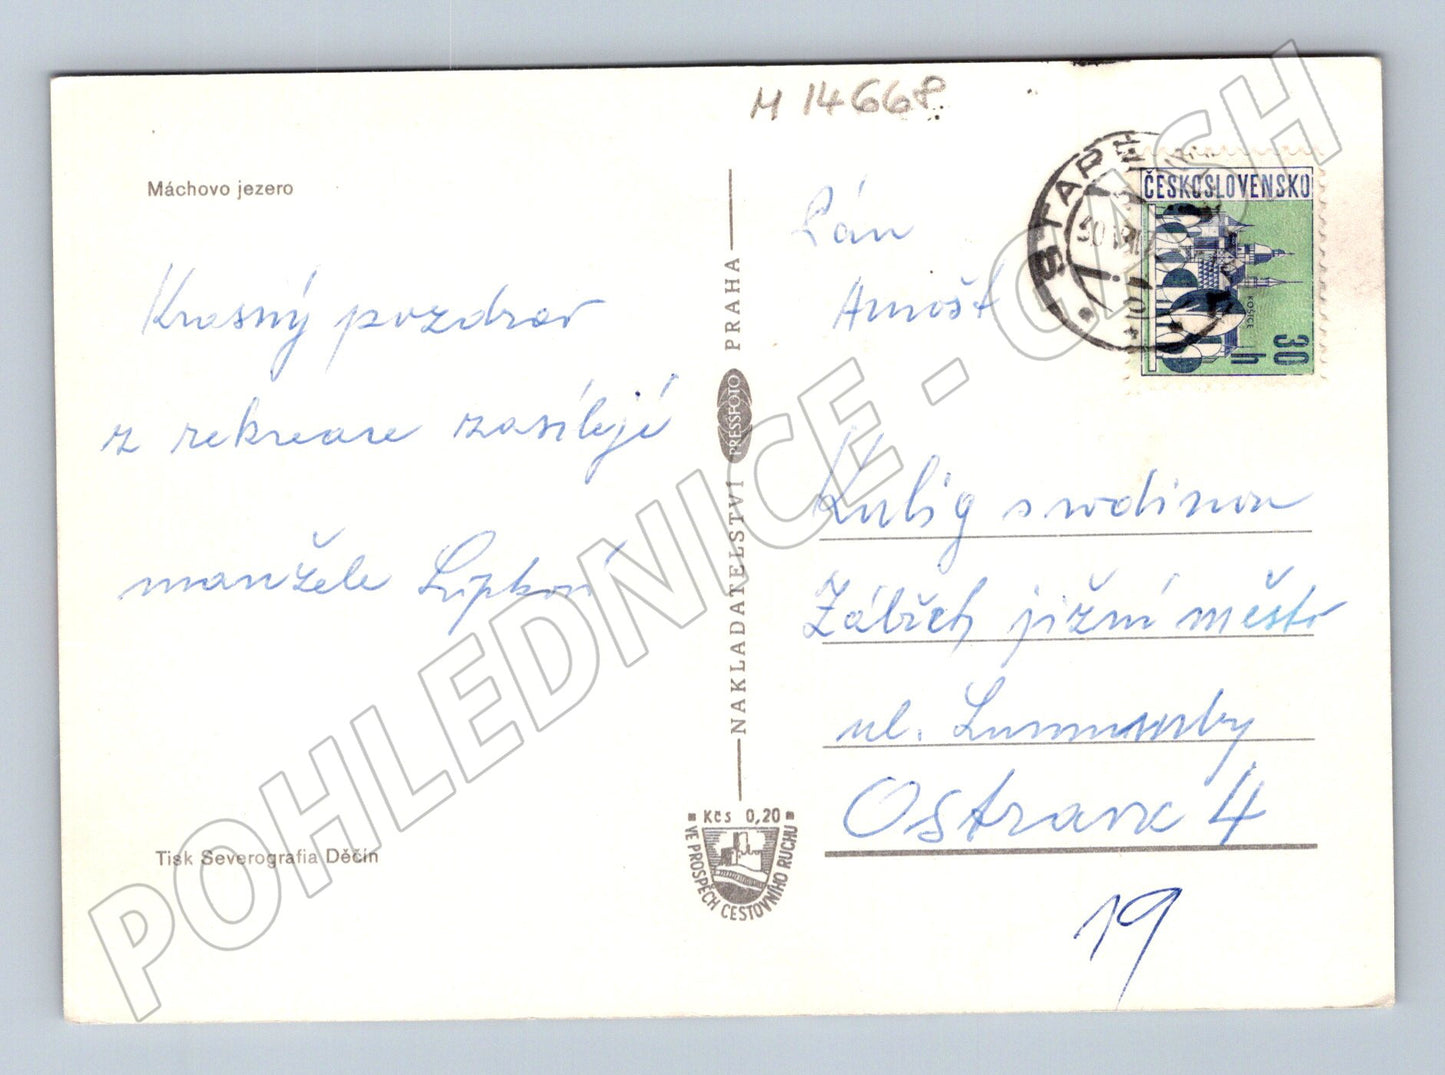 M 14668
Máchovo jezero
Krasný pozdrav
z rekreace zasílejí
manžele Lipkovi
Tisk Severografia Děčín
NAKLADATELSTVÍ PRESSFOTO PRAHA
Kčs 0,20
VE PROSPĚCH CESTOVNÍHO RUCHU
ČESKOSLOVENSKO
KOŠICE
30 h
STAR
Pán
Arnošt
Kulig s rodinou
Zábřeh jižní město
ul. Lumumby
Ostrava 4
19
POHLEDNICE - CASH